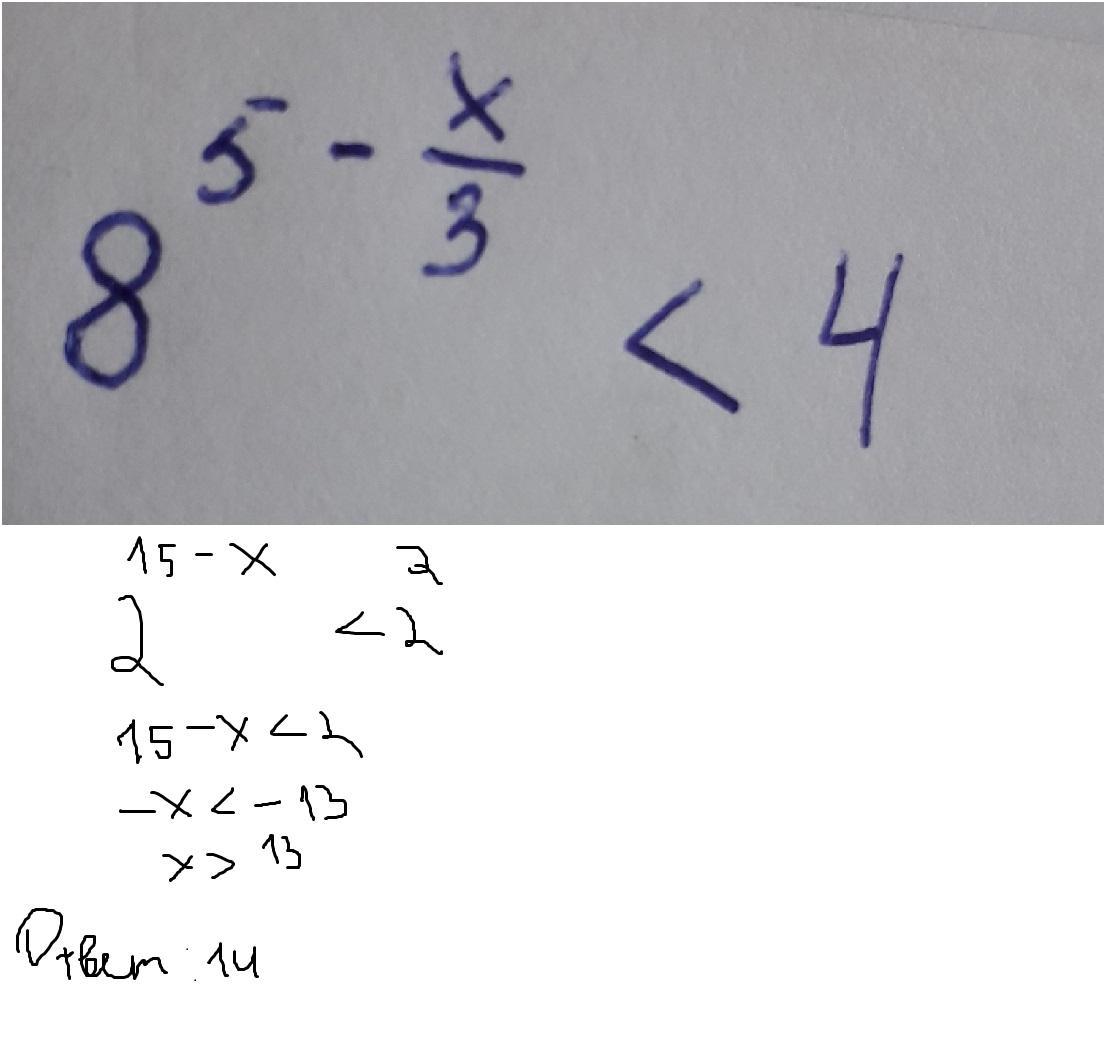 8^{5 - \frac{x}{3}} < 4
2^{15 - x} < 2^2
15 - x < 2
-x < -13
x > 13
Ответ: 14